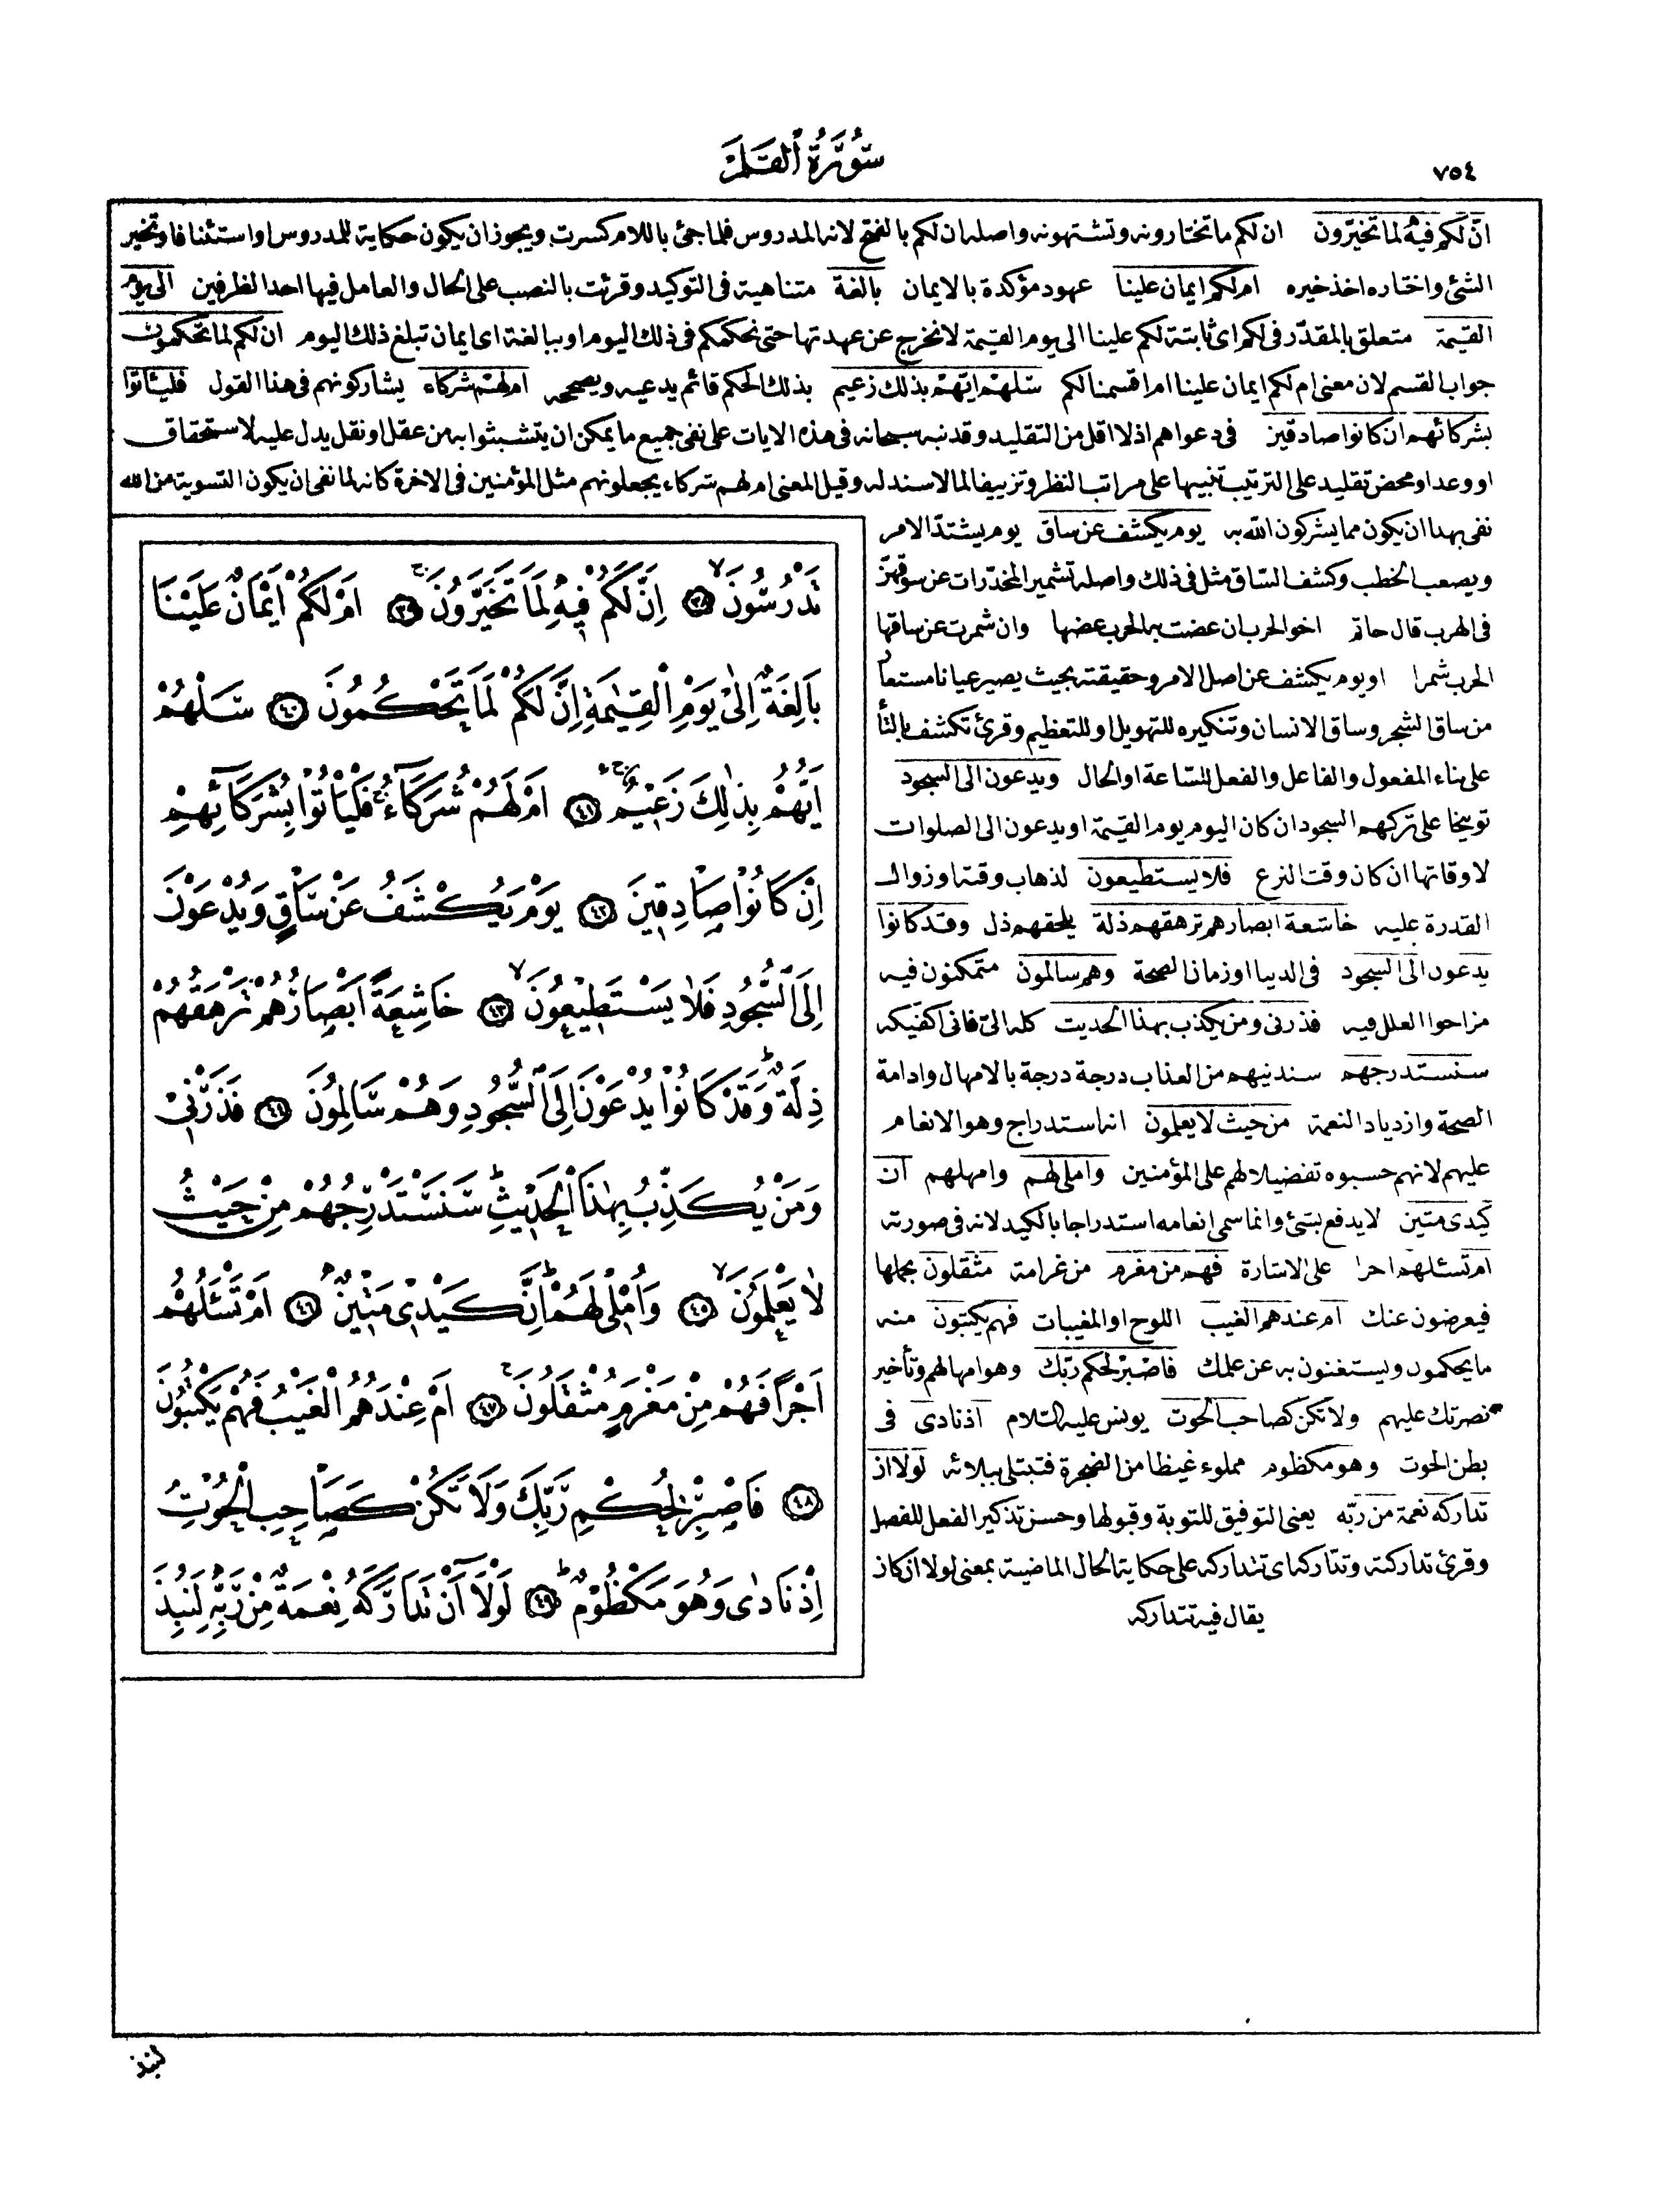 ٧٥٤
سُورَةُ الْقَلَمِ
انّ لكم فيه لما تخيّرون ان لكم ما تختارونه وتشتهونه واصله ان لكم بالفتح لانه المدروس فلما جئ باللام كسرت ويجوز ان يكون حكاية للمدروس او استئنافا وتخير
الشئ واختاره اخذ خيره ام لكم ايمان علينا عهود مؤكدة بالايمان بالغة متناهية فى التوكيد وقرئت بالنصب على الحال والعامل فيها احد الظرفين الى يوم
القيمة متعلق بالمقدّر فى لكم اى ثابتة لكم علينا الى يوم القيمة لا نخرج عن عهدتها حتى نحكمكم فى ذلك اليوم او ببالغة اى ايمان تبلغ ذلك اليوم ان لكم لما تحكمون
جواب القسم لان معنى ام لكم ايمان علينا ام اقسمنا لكم سلهم ايّهم بذلك زعيم بذلك الحكم قائم يدعيه ويصححه ام لهم شركاء يشاركونهم فى هذا القول فليأتوا
بشركائهم ان كانوا صادقين فى دعواهم اذ لا اقل من التقليد وقد نبه سبحانه فى هذه الايات على نفى جميع ما يمكن ان يتشبثوا به من عقل او نقل يدل عليه لاستحقاق
او وعد او محض تقليد على الترتيب تنبيها على مراتب النظر وتزييفا لما لا سند له وقيل المعنى ام لهم شركاء يجعلونهم مثل المؤمنين فى الاخرة كانه لما نفى ان يكون التسوية من الله
نفى بهدا ان يكون مما يشركون الله به يوم يكشف عن ساق يوم يشتدّ الامر
ويصعب الخطب وكشف السّاق مثل فى ذلك واصله تشمير المخدّرات عن سوقهنّ
فى الهرب قال حاتم اخو الحرب ان عضت به الحرب عضها وان شمرت عن ساقها
الحرب شمرا او يوم يكشف عن اصل الامر وحقيقته بحيث يصير عيانا مستعار
من ساق الشجر وساق الانسان وتنكيره للتهويل او للتعظيم وقرئ تكشف بالتّأ
على بناء المفعول والفاعل والفعل للسّاعة او الحال ويدعون الى السجود
توبيخا على تركهم السجود ان كان اليوم يوم القيمة او يدعون الى الصلوات
لاوقاتها ان كان وقت النزع فلا يستطيعون لذهاب وقته او زوال
القدرة عليه خاشعة ابصارهم ترهقهم ذلة يلحقهم ذل وقد كانوا
يدعون الى السجود فى الدنيا او زمان الصحة وهم سالمون متمكنون فيه
مزاحوا العلل فيه فذرنى ومن يكذب بهذا الحديث كله الىّ فانى اكفيكه
سنستدرجهم سندنيهم من العذاب درجة درجة بالامهال وادامة
الصحة وازدياد النعمة من حيث لا يعلمون انه استدراج وهو الانعام
عليهم لانهم حسبوه تفضيلا لهم على المؤمنين واملى لهم وامهلهم ان
كيدى متين لا يدفع بشئ وانما سمى انعامه استدراجا بالكيد لانه فى صورته
ام تسئلهم اجرا على الارشاد فهم من مغرم من غرامة مثقلون بحملها
فيعرضون عنك ام عندهم الغيب اللوح او المغيبات فهم يكتبون منه
ما يحكمون ويستغنون به عن علمك فاصبر لحكم ربّك وهو امهالهم وتأخير
نصرتك عليهم ولا تكن كصاحب الحوت يونس عليه السّلام اذ نادى فى
بطن الحوت وهو مكظوم مملوء غيظا من الضجرة فتبتلى ببلائه لولا ان
تداركه نعمة من ربّه يعنى التوفيق للتوبة وقبولها وحسن تذكير الفعل للفصل
وقرئ تداركته وتدّاركه اى تتداركه على حكاية الحال الماضية بمعنى لولا ان كان
يقال فيه تتداركه
تَدْرُسُونَ ﴿٣٨﴾ اِنَّ لَكُمْ فِيهِ لَمَا تَخَيَّرُونَ ﴿٣٩﴾ اَمْ لَكُمْ اَيْمَانٌ عَلَيْنَا
بَالِغَةٌ اِلٰى يَوْمِ الْقِيٰمَةِ اِنَّ لَكُمْ لَمَا تَحْكُمُونَ ﴿٤٠﴾ سَلْهُمْ
اَيُّهُمْ بِذٰلِكَ زَعِيمٌ ﴿٤١﴾ اَمْ لَهُمْ شُرَكَآءُ فَلْيَأْتُوا بِشُرَكَآئِهِمْ
اِنْ كَانُوا صَادِقِينَ ﴿٤٢﴾ يَوْمَ يُكْشَفُ عَنْ سَاقٍ وَيُدْعَوْنَ
اِلَى السُّجُودِ فَلَا يَسْتَطِيعُونَ ﴿٤٣﴾ خَاشِعَةً اَبْصَارُهُمْ تَرْهَقُهُمْ
ذِلَّةٌ وَقَدْ كَانُوا يُدْعَوْنَ اِلَى السُّجُودِ وَهُمْ سَالِمُونَ ﴿٤٤﴾ فَذَرْنِى
وَمَنْ يُكَذِّبُ بِهٰذَا الْحَدِيثِ سَنَسْتَدْرِجُهُمْ مِنْ حَيْثُ
لَا يَعْلَمُونَ ﴿٤٥﴾ وَاُمْلِى لَهُمْ اِنَّ كَيْدِى مَتِينٌ ﴿٤٦﴾ اَمْ تَسْئَلُهُمْ
اَجْرًا فَهُمْ مِنْ مَغْرَمٍ مُثْقَلُونَ ﴿٤٧﴾ اَمْ عِنْدَهُمُ الْغَيْبُ فَهُمْ يَكْتُبُونَ
﴿٤٨﴾ فَاصْبِرْ لِحُكْمِ رَبِّكَ وَلَا تَكُنْ كَصَاحِبِ الْحُوتِ
اِذْ نَادٰى وَهُوَ مَكْظُومٌ ﴿٤٩﴾ لَوْلَا اَنْ تَدَارَكَهُ نِعْمَةٌ مِنْ رَبِّهِ لَنُبِذَ
لنبذ